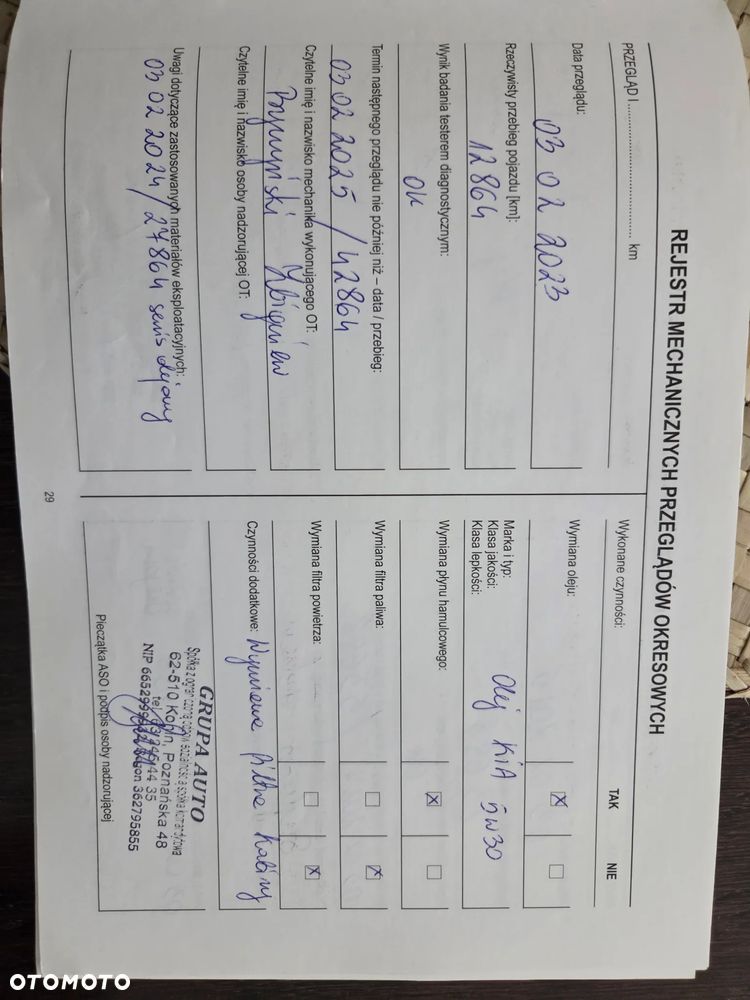 REJESTR MECHANICZNYCH PRZEGLĄDÓW OKRESOWYCH
PRZEGLĄD I.................................. km
Data przeglądu:
03 02 2023
Rzeczywisty przebieg pojazdu [km]:
12864
Wynik badania testerem diagnostycznym:
OK
Termin następnego przeglądu nie później niż – data / przebieg:
03 02 2025 / 42864
Czytelne imię i nazwisko mechanika wykonującego OT:
Zbigniew
Czytelne imię i nazwisko osoby nadzorującej OT:
Uwagi dotyczące zastosowanych materiałów eksploatacyjnych:
03 02 2024 / 27864 serwis olejowy
Wykonane czynności:
TAK
NIE
Wymiana oleju:
Marka i typ:
Klasa jakości:
Klasa lepkości:
Olej KIA 5W30
Wymiana płynu hamulcowego:
Wymiana filtra paliwa:
Wymiana filtra powietrza:
Czynności dodatkowe: Wymiana filtra kabiny
GRUPA AUTO
Spółka z ograniczoną odpowiedzialnością spółka komandytowa
62-510 Konin, Poznańska 48
tel. 44 35
NIP Regon 362795855
Pieczątka ASO i podpis osoby nadzorującej
29
OTOMOTO